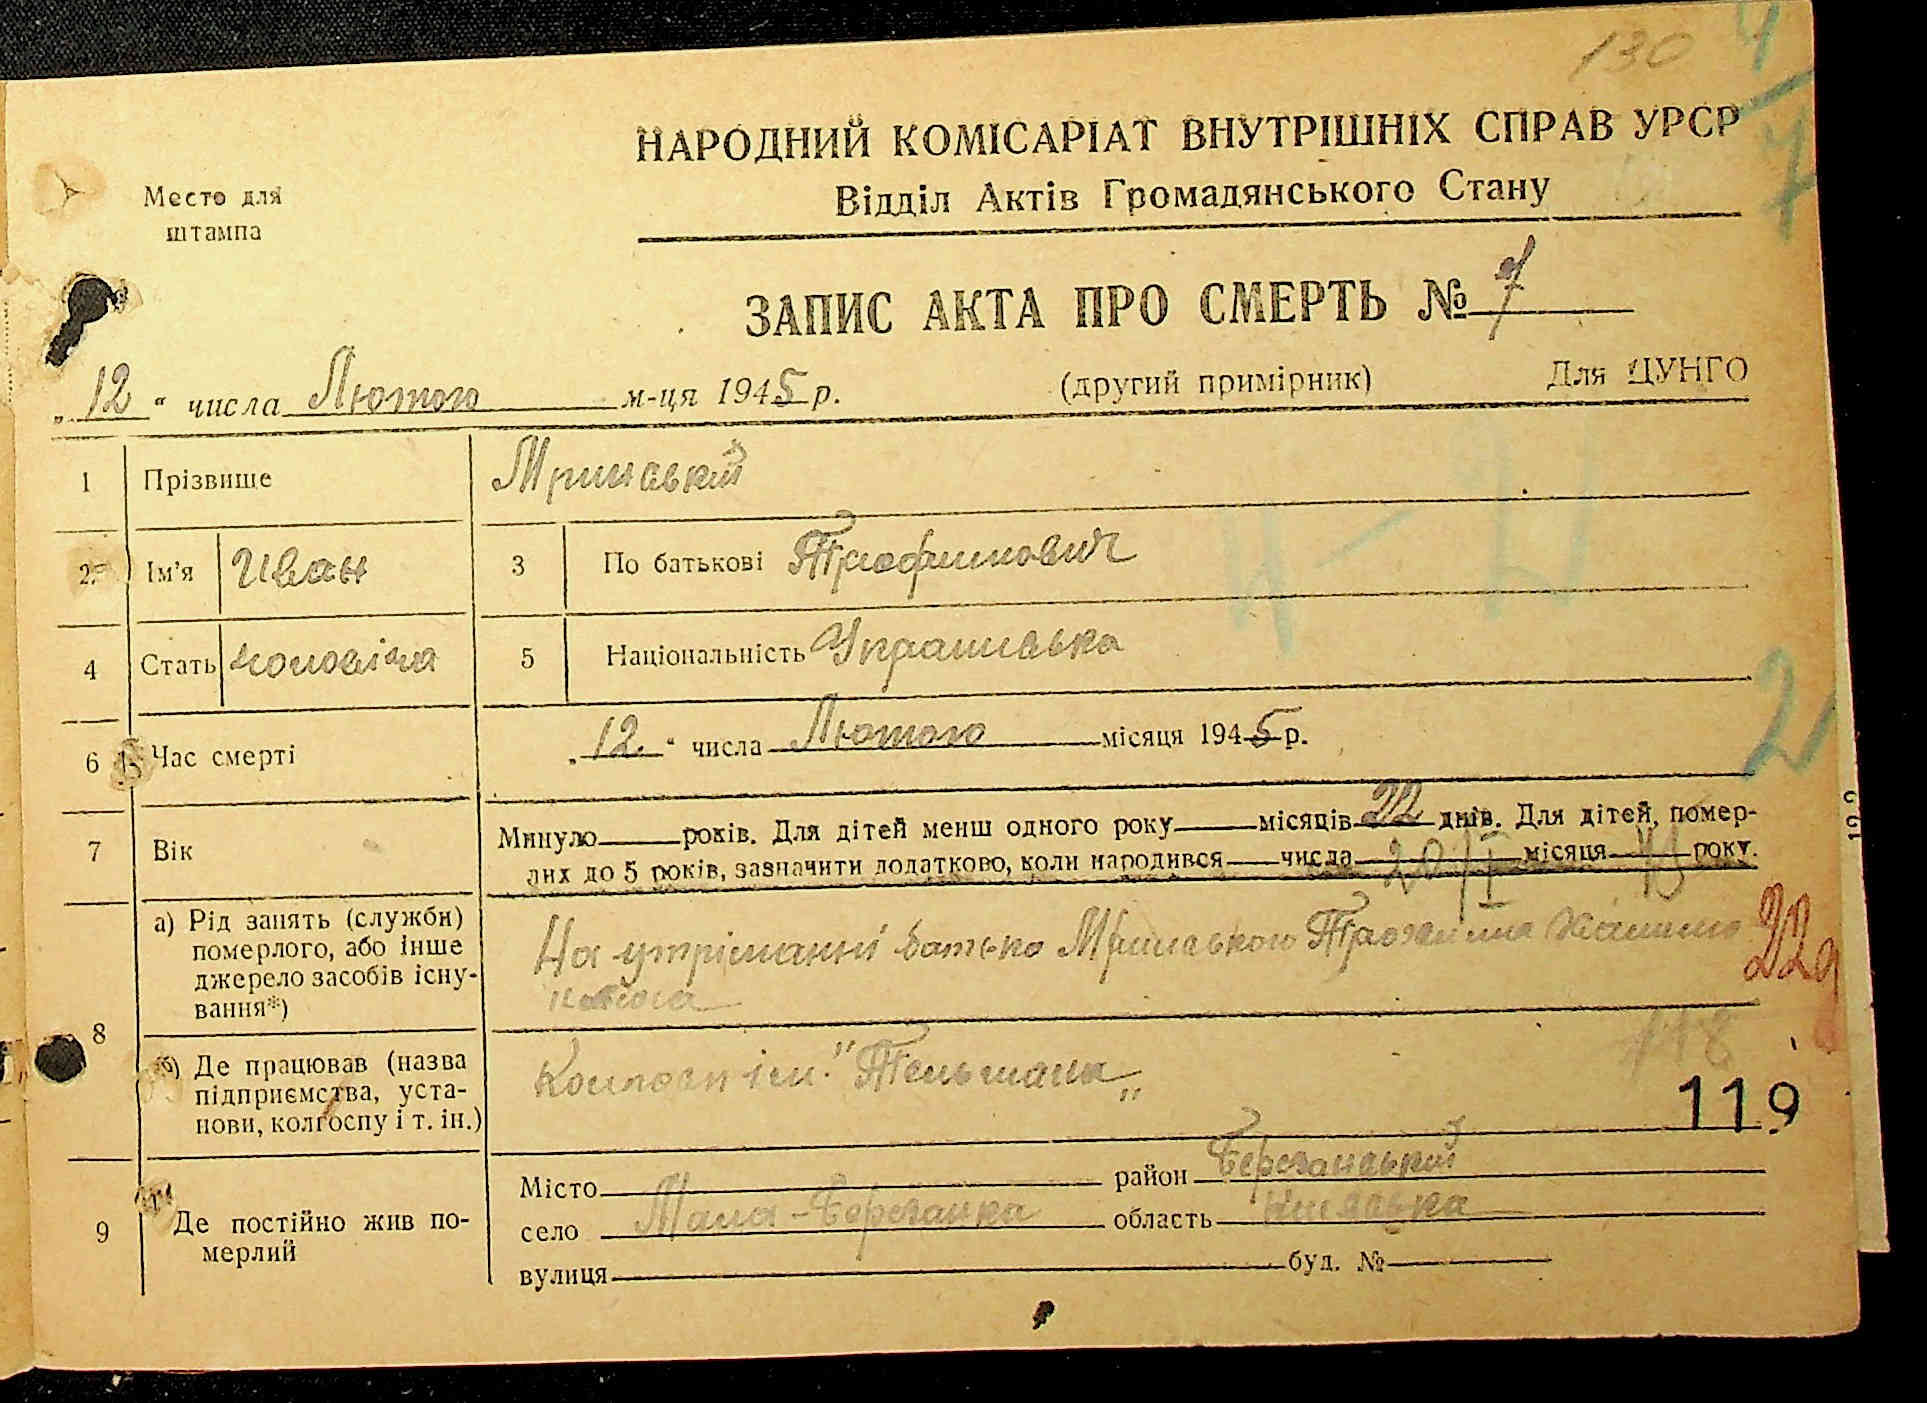 130
НАРОДНИЙ КОМІСАРІАТ ВНУТРІШНІХ СПРАВ УРСР
Відділ Актів Громадянського Стану
Место для
штампа
ЗАПИС АКТА ПРО СМЕРТЬ № 7
„12“ числа Лютого м-ця 1945 р. (другий примірник) Для ЦУНГО
1 Прізвище Мринський
2 Ім'я Иван 3 По батькові Трофимович
4 Стать чоловіча 5 Національність Українська
6 Час смерті „12“ числа Лютого місяця 1945 р.
7 Вік Минуло років. Для дітей менш одного року місяців 22 днів. Для дітей, помер-
лих до 5 років, зазначити додатково, коли народився числа 20/I місяця 45 року.
8 а) Рід занять (служби)
померлого, або інше
джерело засобів існу-
вання*)
На утріманні батька Мринського
22д
б) Де працював (назва
підприємства, уста-
нови, колгоспу і т. ін.)
Колгосп ім. "Тельмана"
118
119
9 Де постійно жив по-
мерлий
Місто район Березанський
село Мала-Березанка область
вулиця буд. №